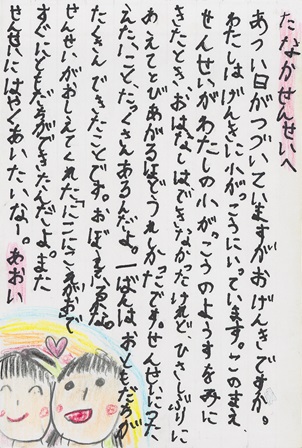 たなかせんせいへ
あつい日がつづいていますがおげんきですか。
わたしはげんきに小がっこうにいっています。このまえ、
せんせいがわたしの小がっこうのようすをみに
きたとき、おはなしはできなかったけれど、ひさしぶりに
あえてとびあがるほどうれしかったです。せんせいにつた
えたいこと、たっくさんあるんだよ。一ばんは、おともだちが
たくさんできたことです。
せんせいがおしえてくれた「にこにこえがおで
すぐにともだちができたんだよ。また
せんせいにはやくあいたいなー。あおい